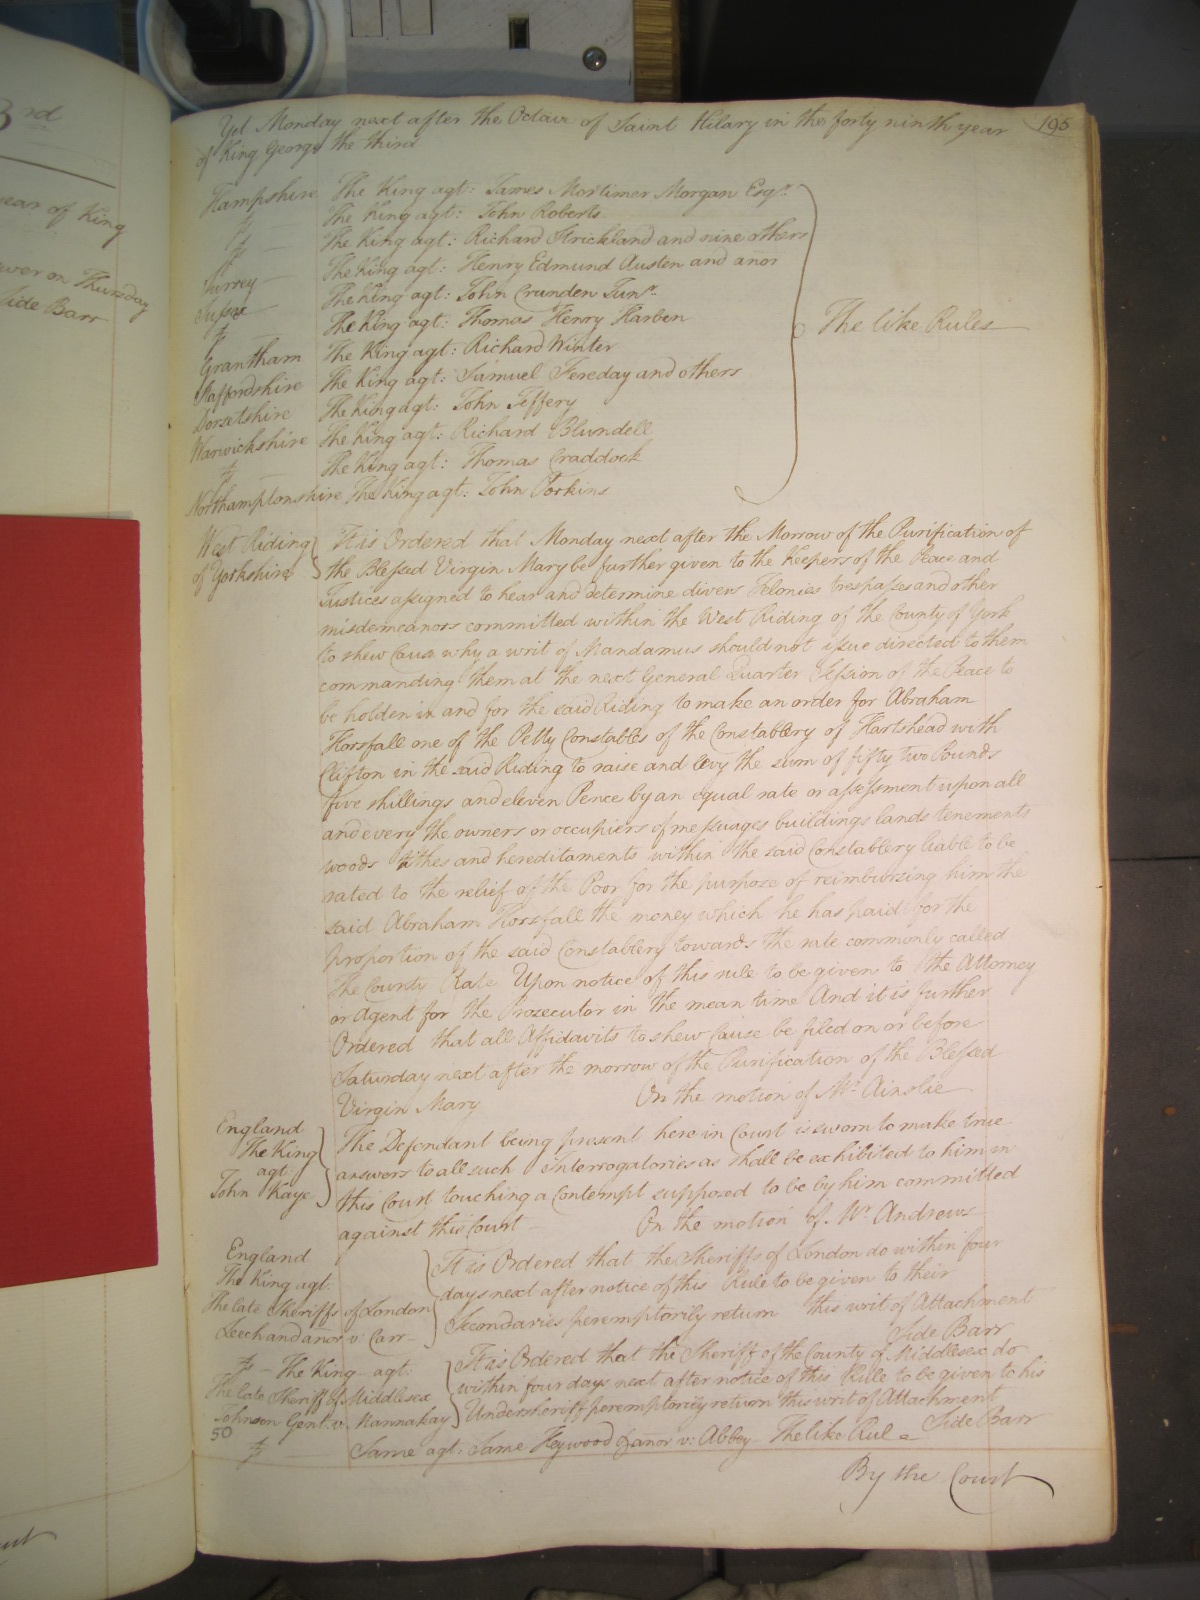 3rd
year of King
over on Thursday
Side Barr
195
Yet Monday next after the Octave of Saint Hilary in the forty ninth year
of King George the third
Hampshire The King agt: James Mortimer Morgan Esqr.
The King agt: John Roberts
The King agt: Richard Strickland and nine others
Surrey The King agt: Henry Edmund Austen and anor
Sussex The King agt: John Crunden Junr.
The King agt: Thomas Henry Harben
Grantham The King agt: Richard Winter
Staffordshire The King agt: Samuel Fereday and others
Dorsetshire The King agt: John Jeffery
Warwickshire The King agt: Richard Blundell
The King agt: Thomas Craddock
Northamptonshire The King agt: John Perkins
The like Rules
West Riding
of Yorkshire
It is Ordered that Monday next after the Morrow of the Purification of
the Blessed Virgin Mary be further given to the Keepers of the Peace and
Justices assigned to hear and determine divers Felonies trespasses and other
misdemeanors committed within the West Riding of the County of York
to shew Cause why a writ of Mandamus should not issue directed to them
commanding them at the next General Quarter Session of the Peace to
be holden in and for the said Riding to make an order for Abraham
Horsfall one of the Petty Constables of the Constablery of Hartshead with
Clifton in the said Riding to raise and levy the sum of fifty two Pounds
five shillings and eleven Pence by an equal rate or assessment upon all
and every the owners or occupiers of messuages buildings lands tenements
woods tithes and hereditaments within the said Constablery liable to be
rated to the relief of the Poor for the purpose of reimbursing him the
said Abraham Horsfall the money which he has paid for the
proportion of the said Constablery towards the rate commonly called
the County Rate Upon notice of this rule to be given to the Attorney
or Agent for the Prosecutor in the mean time And it is further
Ordered that all Affidavits to shew Cause be filed on or before
Saturday next after the morrow of the Purification of the Blessed
Virgin Mary On the motion of Mr. Ainslie
England
The King
agt:
John Kaye
The Defendant being present here in Court is sworn to make true
answers to all such Interrogatories as shall be exhibited to him in
this Court touching a Contempt supposed to be by him committed
against this Court On the motion of Mr. Andrews
England
The King agt.
The late Sheriffs of London
Leech and anor v: Carr
It is Ordered that the Sheriffs of London do within four
days next after notice of this Rule to be given to their
Secondaries peremptorily return this writ of Attachment
Side Barr
The King agt:
The late Sheriff of Middlesex
Johnson Gent. v: Nannakay
It is Ordered that the Sheriff of the County of Middlesex do
within four days next after notice of this Rule to be given to his
Undersheriff peremptorily return this writ of Attachment
Side Barr
50
Same agt: Same Heywood & anor v: Abbey The like Rul
By the Court